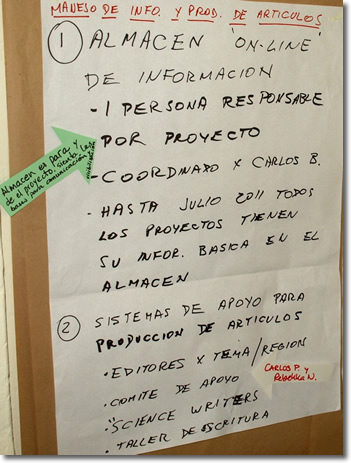 MANEJO DE INFO. Y PROD. DE ARTICULOS
1 ALMACEN "ON-LINE"
DE INFORMACION
- 1 PERSONA RESPONSABLE
POR PROYECTO
- COORDINADO X CARLOS B.
- HASTA JULIO 2011 TODOS
LOS PROYECTOS TIENEN
SU INFOR. BASICA EN EL
ALMACEN
Almacen es para y
de el proyecto, sienta las
bases para comunicación y
2 SISTEMAS DE APOYO PARA
PRODUCCION DE ARTICULOS
• EDITORES X TEMA/REGION
• COMITE DE APOYO
CARLOS P. y
Rebekka N.
• "SCIENCE WRITERS
• TALLER DE ESCRITURA